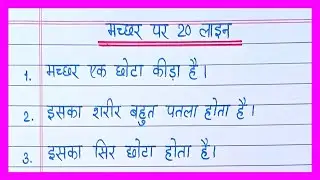 मच्छर पर 20 लाइन
1. मच्छर एक छोटा कीड़ा है।
2. इसका शरीर बहुत पतला होता है।
3. इसका सिर छोटा होता है।